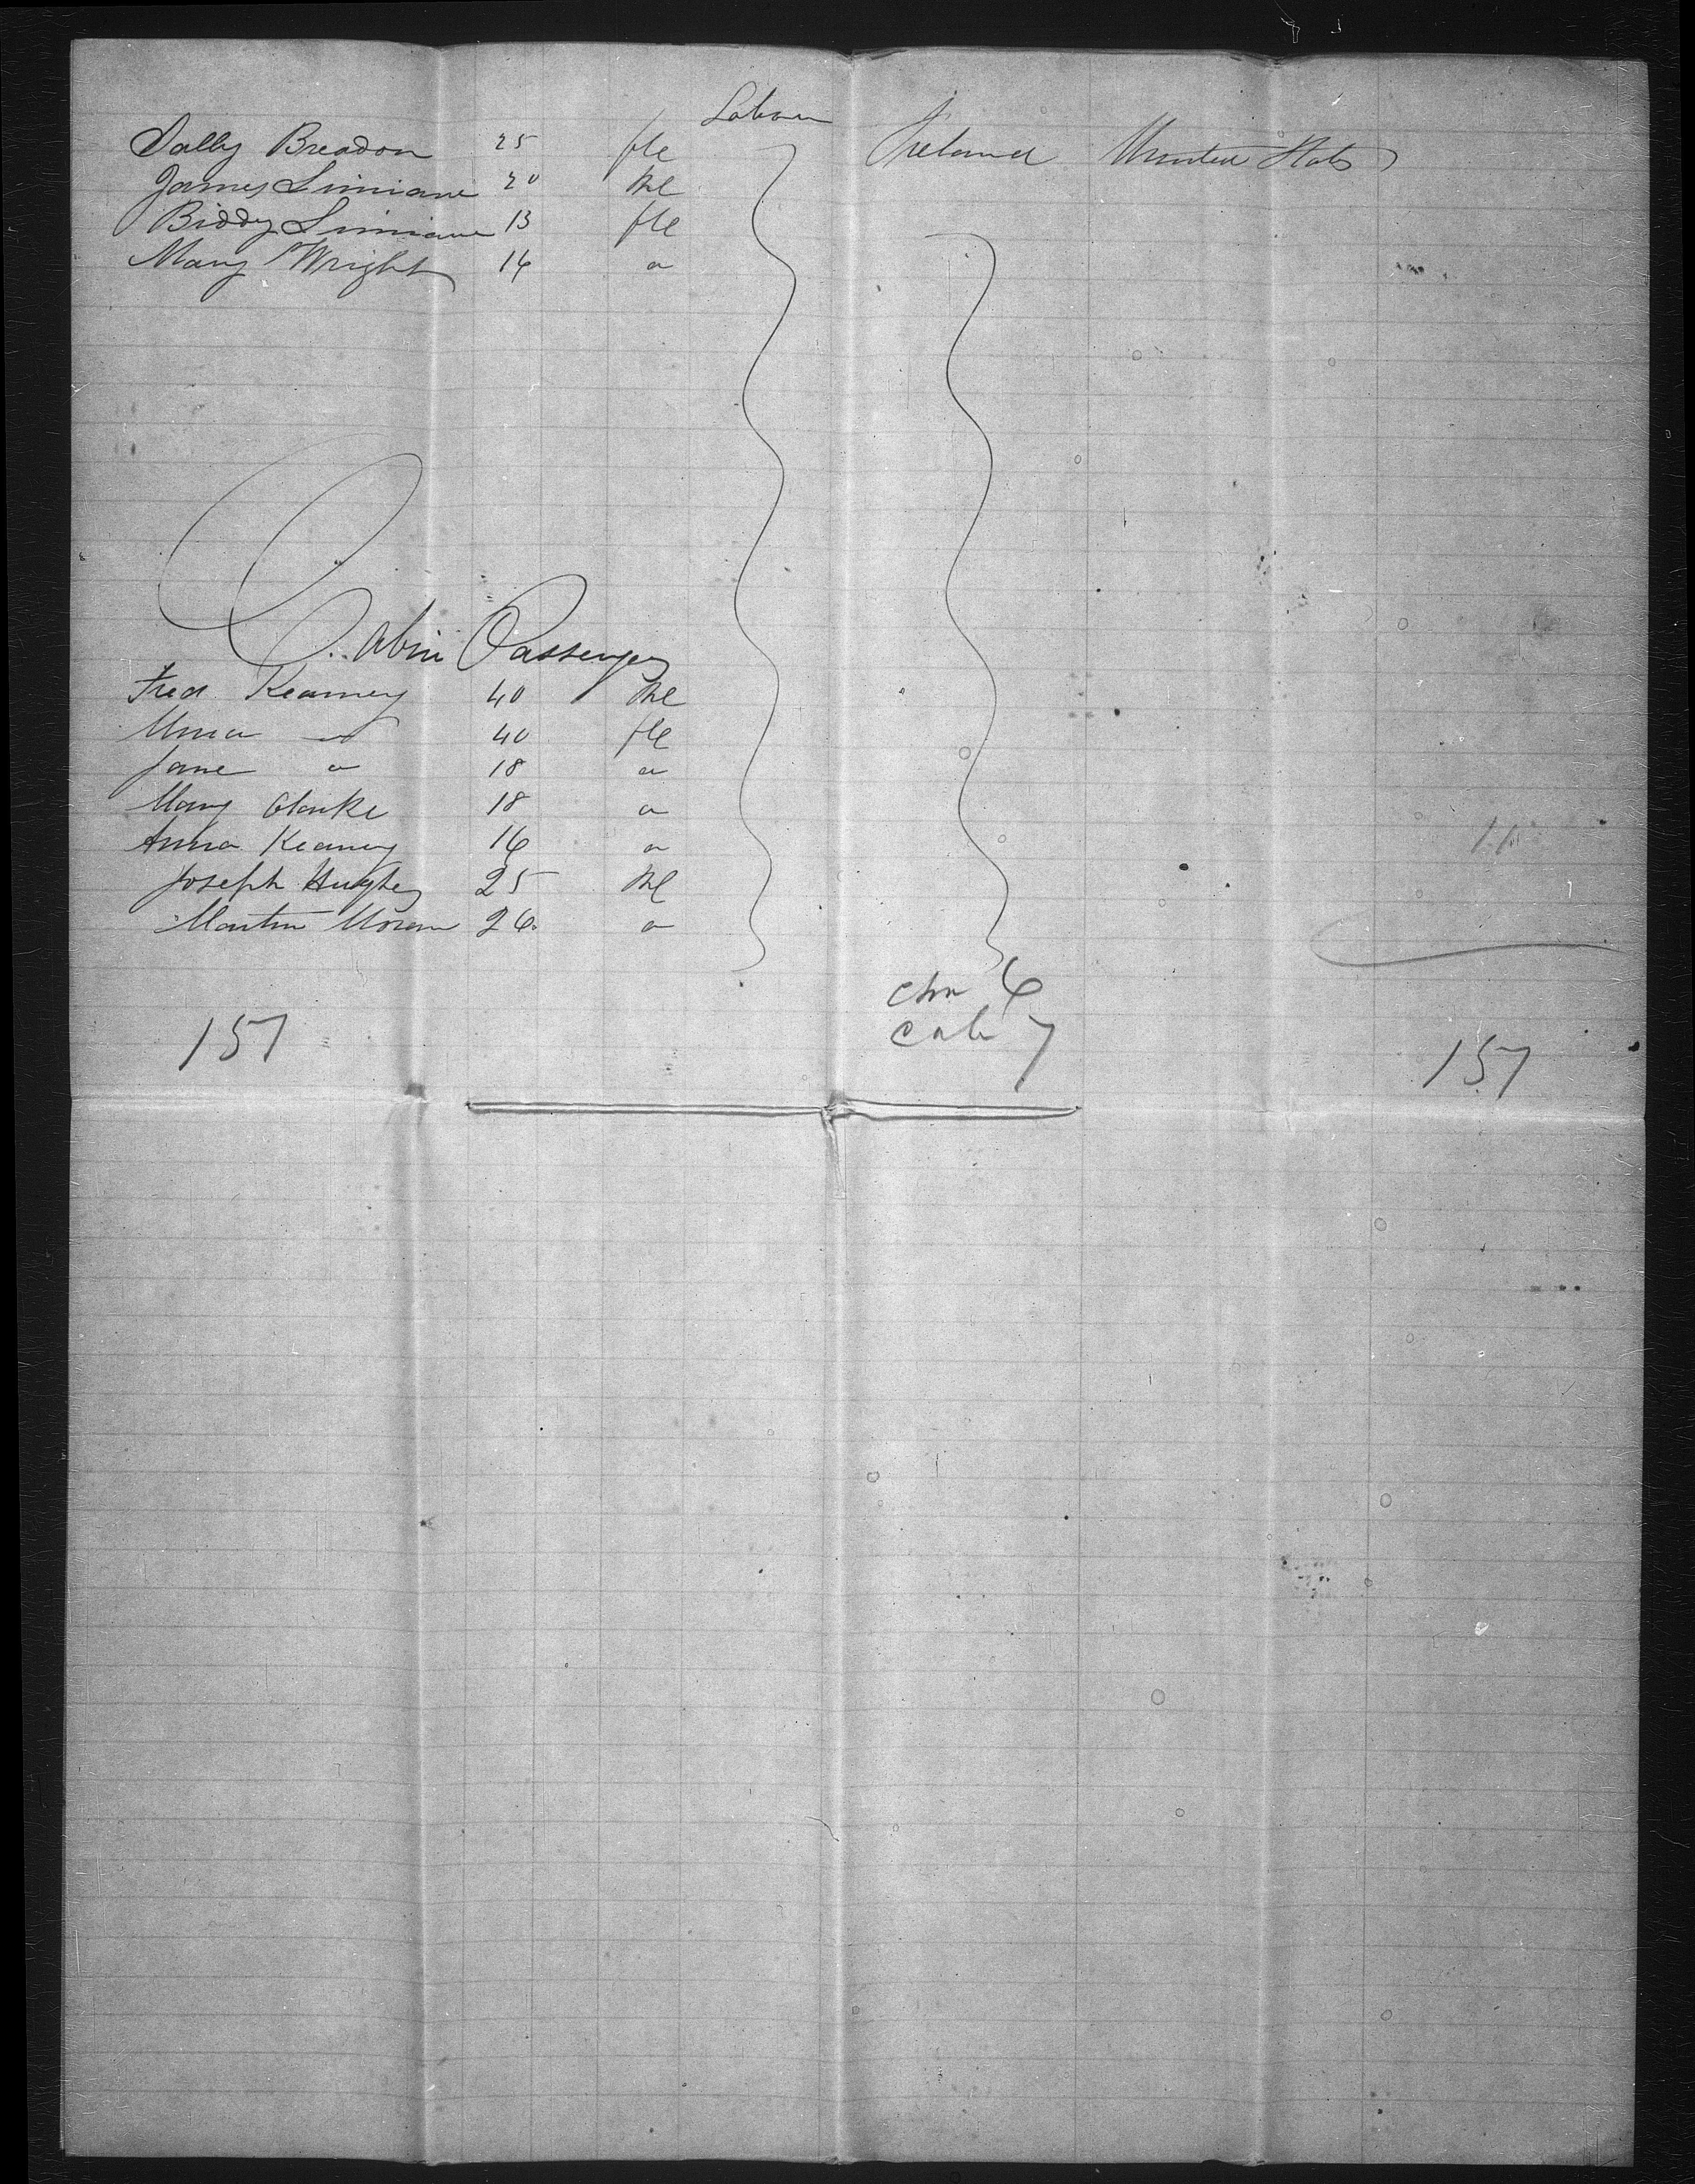 Labour
Sally Breadon 25 fle Ireland United States
James Liniane 20 Ml
Biddy Liniane 13 fle
Mary Wright 14 "
Cabin Passenger
Fred Kearney 40 Ml
40 fle
Jane " 18 "
Mary Clarke 18 "
Anna Kearney 16 "
Joseph Hughes 25 Ml
Martin Moran 26 "
6
157 Cab 7 157